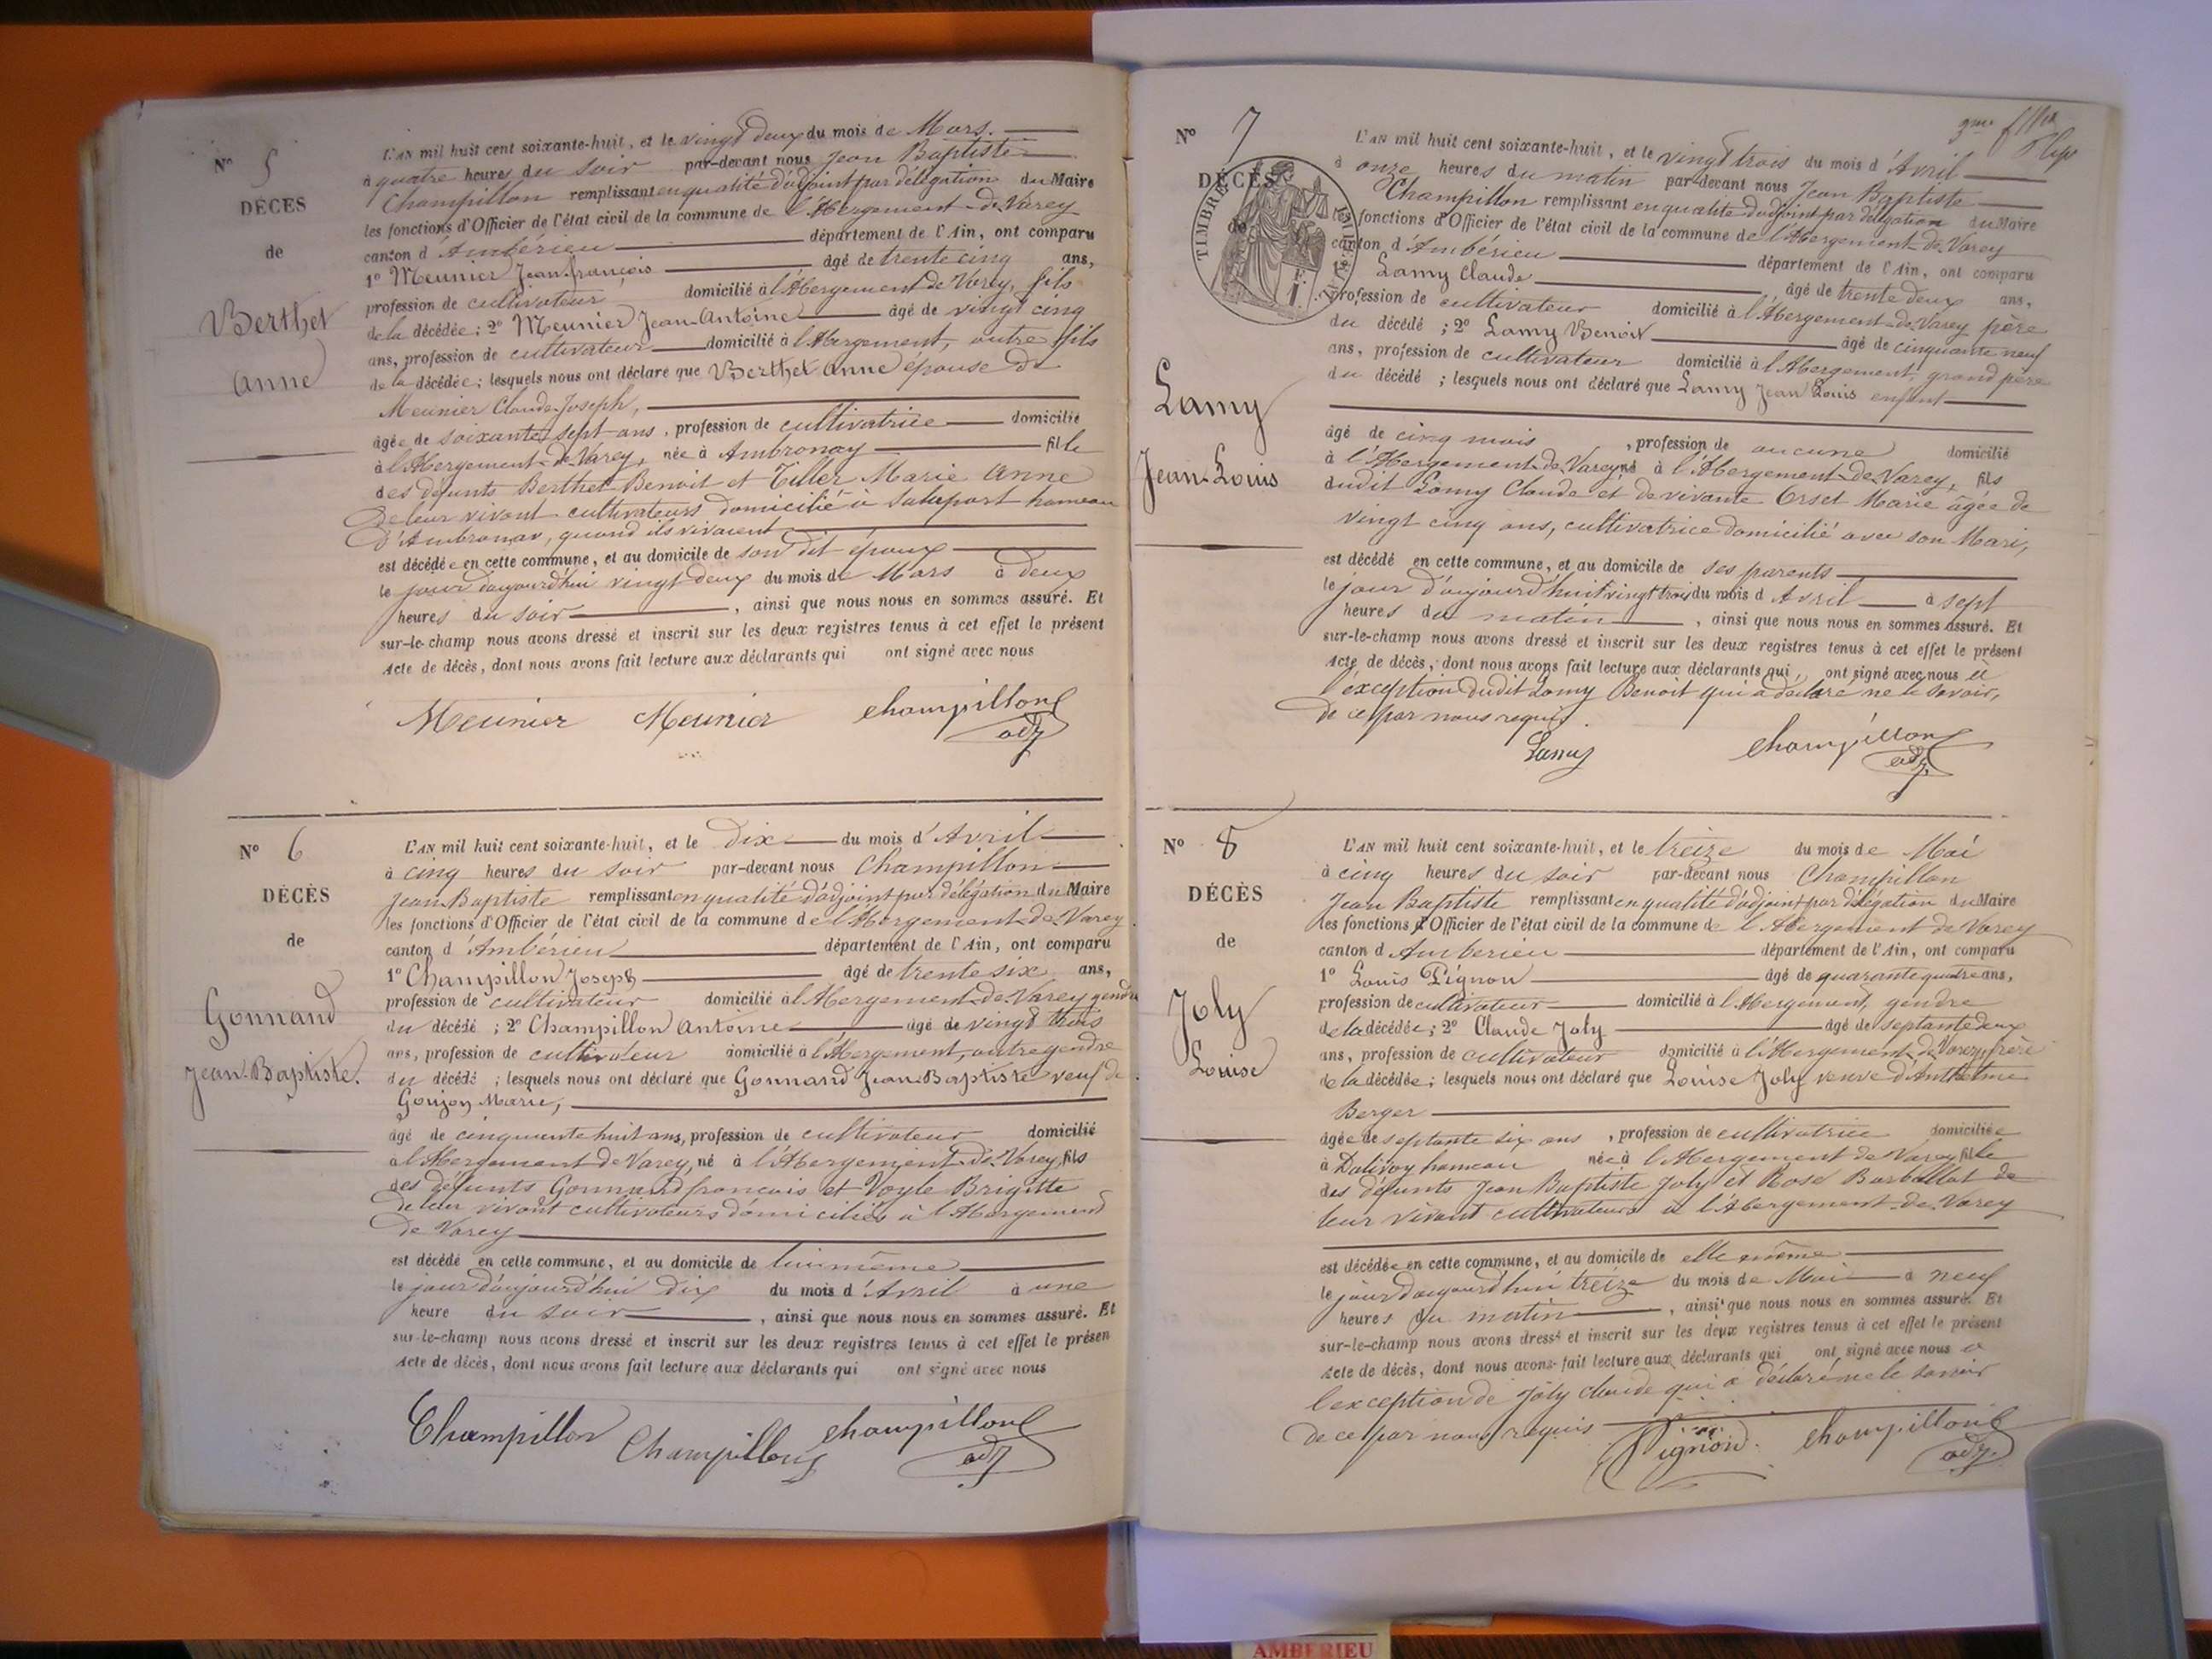 N° 5
DÉCES
de
Berthet
Anne
L'AN mil huit cent soixante-huit, et le vingt deux du mois de Mars.
à quatre heures du soir par-devant nous Jean Baptiste
Champillon remplissant en qualité d'adjoint par délégation du Maire
les fonctions d'Officier de l'état civil de la commune de l'Abergement-de-Varey
canton d'Ambérieu département de l'Ain, ont comparu
1° Meunier Jean-françois âgé de trente cinq ans,
profession de cultivateur domicilié à l'Abergement de Varey, fils
de la décédée ; 2° Meunier Jean-Antoine âgé de vingt cinq
ans, profession de cultivateur domicilié à l'Abergement, autre fils
de la décédée ; lesquels nous ont déclaré que Berthet Anne épouse de
Meunier Claude-Joseph,
âgée de soixante sept ans, profession de cultivatrice domicilié
à l'Abergement-de-Varey, née à Ambronay fille
des défunts Berthet Benoit et Tiller Marie Anne
de leur vivant cultivateurs domicilié à Salaport hameau
d'Ambronay, quand ils vivaient
est décédée en cette commune, et au domicile de son dit époux
le jour d'aujourd'hui vingt deux du mois de Mars à deux
heures du soir , ainsi que nous nous en sommes assuré. Et
sur-le-champ nous avons dressé et inscrit sur les deux registres tenus à cet effet le présent
Acte de décès, dont nous avons fait lecture aux déclarants qui ont signé avec nous
Meunier Meunier Champillon
adj
N° 6
DÉCÈS
de
Gonnand
Jean-Baptiste.
L'AN mil huit cent soixante-huit, et le Dix du mois d'Avril
à cinq heures du soir par-devant nous Champillon
Jean-Baptiste remplissant en qualité d'adjoint par délégation du Maire
les fonctions d'Officier de l'état civil de la commune de l'Abergement-de-Varey
canton d'Ambérieu département de l'Ain, ont comparu
1° Champillon Joseph âgé de trente six ans,
profession de cultivateur domicilié à l'Abergement-de-Varey gendre
du décédé ; 2° Champillon Antoine âgé de vingt trois
ans, profession de cultivateur domicilié à l'Abergement, autre gendre
du décédé ; lesquels nous ont déclaré que Gonnand Jean-Baptiste veuf de
Goujon Marie,
âgé de cinquante huit ans, profession de cultivateur domicilié
à l'Abergement de Varey, né à l'Abergement-de-Varey, fils
des défunts Gonnand françois et Voyle Brigitte
de leur vivant cultivateurs domiciliés à l'Abergement
de Varey
est décédé en cette commune, et au domicile de lui même
le jour d'aujourd'hui dix du mois d'Avril à une
heure du soir , ainsi que nous nous en sommes assuré. Et
sur-le-champ nous avons dressé et inscrit sur les deux registres tenus à cet effet le présen
Acte de décès, dont nous avons fait lecture aux déclarants qui ont signé avec nous
Champillon Champillon Champillon
adj
N° 7
DÉCÈS
de
TIMBRE
Lamy
Jean-Louis
L'AN mil huit cent soixante-huit, et le vingt trois du mois d'Avril
à onze heures du matin par-devant nous Jean Baptiste
Champillon remplissant en qualité d'adjoint par délégation du Maire
les fonctions d'Officier de l'état civil de la commune de l'Abergement-de-Varey
canton d'Ambérieu département de l'Ain, ont comparu
1° Lamy Claude âgé de trente deux ans,
profession de cultivateur domicilié à l'Abergement-de-Varey père
du décédé ; 2° Lamy Benoit âgé de cinquante neuf
ans, profession de cultivateur domicilié à l'Abergement, grand père
du décédé ; lesquels nous ont déclaré que Lamy Jean Louis enfant
âgé de cinq mois , profession de aucune domicilié
à l'Abergement-de-Varey né à l'Abergement-de-Varey, fils
dudit Lamy Claude et de vivante Orset Marie âgée de
vingt cinq ans, cultivatrice domicilié avec son Mari,
est décédé en cette commune, et au domicile de ses parents
le jour d'aujourd'hui vingt trois du mois d'Avril à sept
heures du matin , ainsi que nous nous en sommes assuré. Et
sur-le-champ nous avons dressé et inscrit sur les deux registres tenus à cet effet le présent
Acte de décès, dont nous avons fait lecture aux déclarants qui ont signé avec nous à
l'exception dudit Lamy Benoit qui a déclaré ne le savoir,
de ce par nous requis.
Lamy Champillon
adj
N° 8
DÉCÈS
de
Joly
Louise
L'AN mil huit cent soixante-huit, et le treize du mois de Mai
à cinq heures du soir par-devant nous Champillon
Jean Baptiste remplissant en qualité d'adjoint par délégation du Maire
les fonctions d'Officier de l'état civil de la commune de l'Abergement de Varey
canton d'Amberieu département de l'Ain, ont comparu
1° Louis Pignon âgé de quarante quatre ans,
profession de cultivateur domicilié à l'Abergement, gendre
de la décédée ; 2° Claude Joly âgé de septante deux
ans, profession de cultivateur domicilié à l'Abergement de Varey frère
de la décédée ; lesquels nous ont déclaré que Louise Joly veuve d'Anthelme
Berger
âgée de septante six ans , profession de cultivatrice domiciliée
à Dalivoy hameau née à l'Abergement de Varey fille
des défunts Jean Baptiste Joly et Rose Barballat de
leur vivant cultivateurs à l'Abergement-de-Varey
est décédée en cette commune, et au domicile de elle même
le jour d'aujourd'hui treize du mois de Mai à neuf
heures du matin , ainsi que nous nous en sommes assuré. Et
sur-le-champ nous avons dressé et inscrit sur les deux registres tenus à cet effet le présent
Acte de décès, dont nous avons fait lecture aux déclarants qui ont signé avec nous à
l'exception de Joly Claude qui a déclaré ne le savoir
de ce par nous requis
Pignon. Champillon
adj.
AMBERIEU